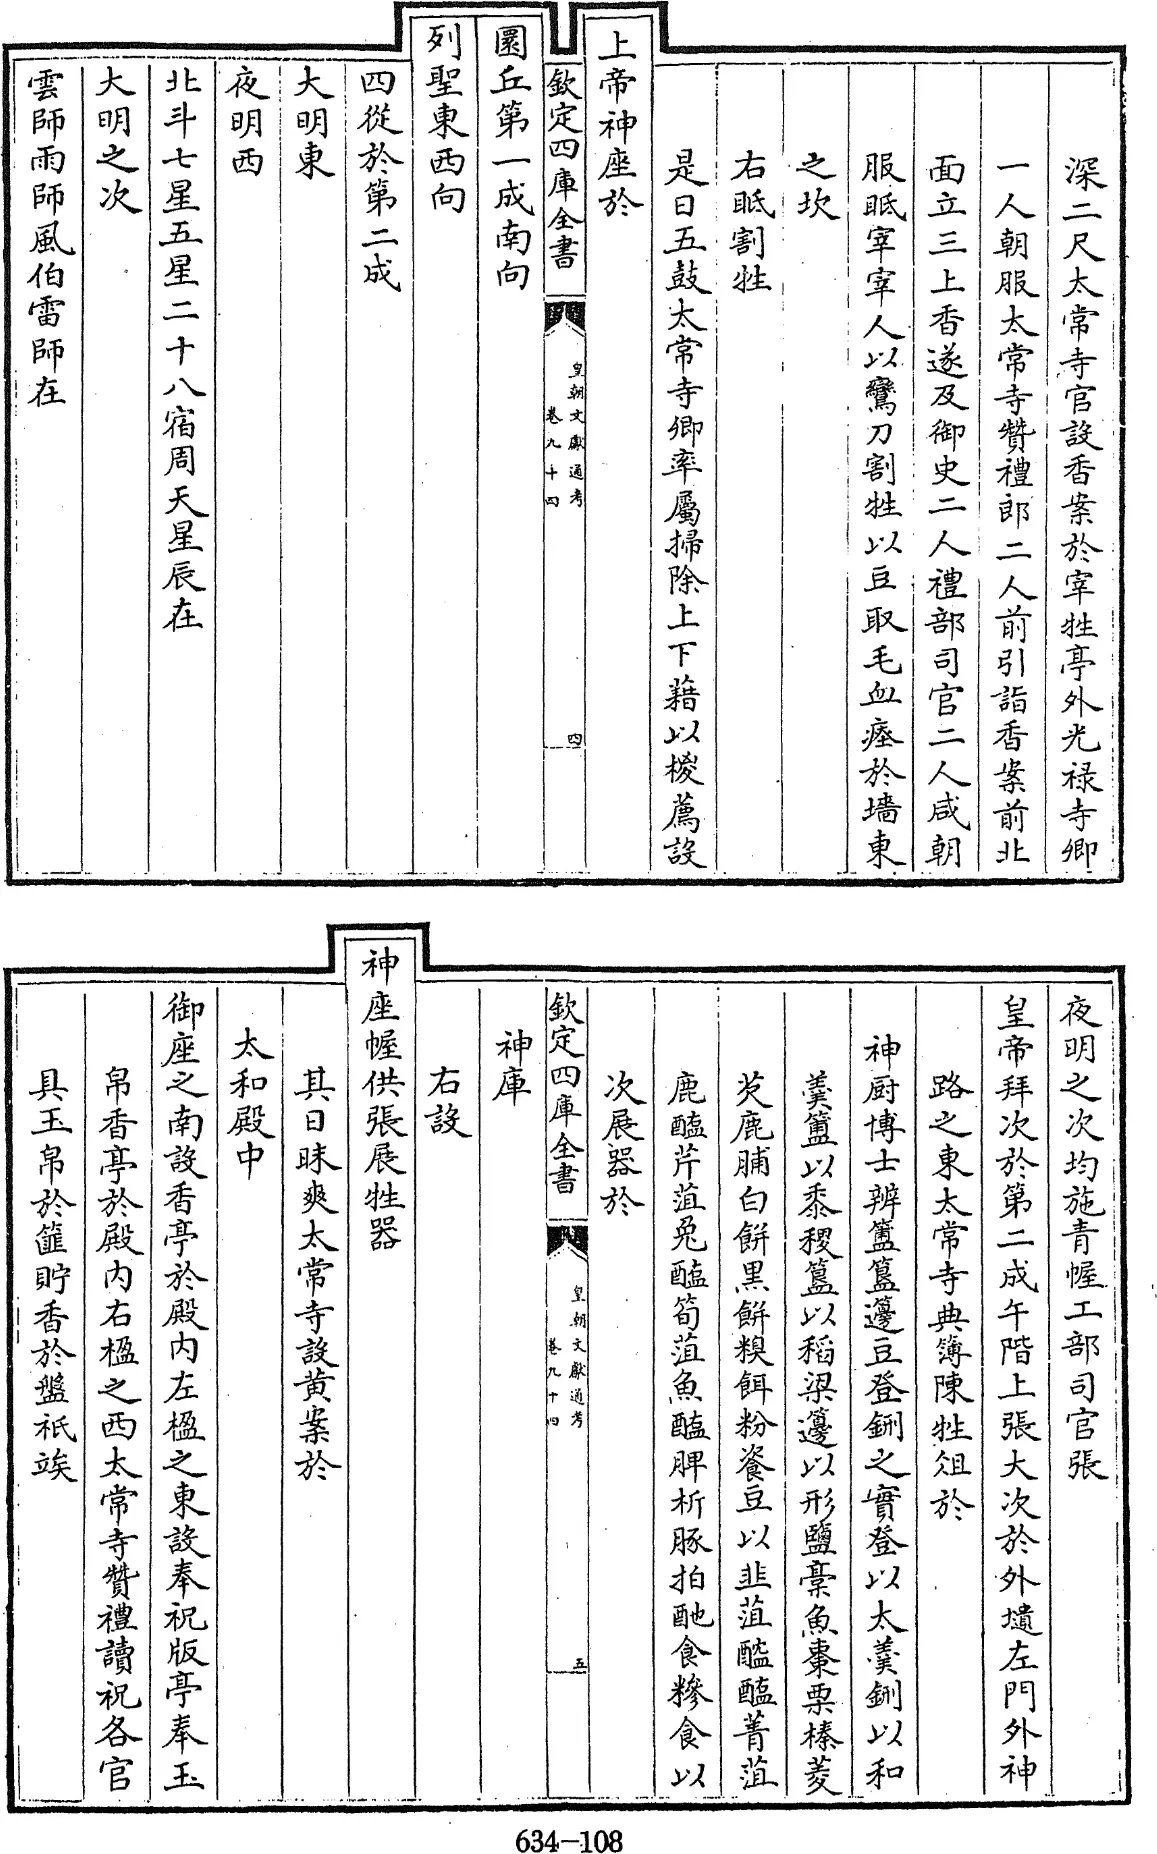 深二尺太常寺官設香案於宰牲亭外光禄寺卿
一人朝服太常寺贊禮郎二人前引詣香案前北
面立三上香遂及御史二人禮部司官二人咸朝
服眡宰宰人以鸞刀割牲以豆取毛血瘞於墻東
之坎
右眡割牲
是日五鼓太常寺卿率屬掃除上下藉以椶薦設
上帝神座於
欽定四庫全書
皇朝文獻通考
卷九十四
四
圜丘第一成南向
列聖東西向
四從於第二成
大明東
夜明西
北斗七星五星二十八宿周天星辰在
大明之次
雲師雨師風伯雷師在
夜明之次均施青幄工部司官張
皇帝拜次於第二成午階上張大次於外壝左門外神
路之東太常寺典簿陳牲俎於
神厨博士辨簠簋籩豆登鉶之實登以太羹鉶以和
羹簠以黍稷簋以稻粱籩以形鹽藁魚棗栗榛菱
芡鹿脯白餅黑餅糗餌粉餈豆以韭菹醓醢菁菹
鹿醢芹菹兔醢筍菹魚醢脾析豚拍酏食糝食以
次展器於
欽定四庫全書
皇朝文獻通考
卷九十四
五
神庫
右設
神座幄供張展牲器
其日昧爽太常寺設黄案於
太和殿中
御座之南設香亭於殿内左楹之東設奉祝版亭奉玉
帛香亭於殿内右楹之西太常寺贊禮讀祝各官
具玉帛於篚貯香於盤祇竢
634-108